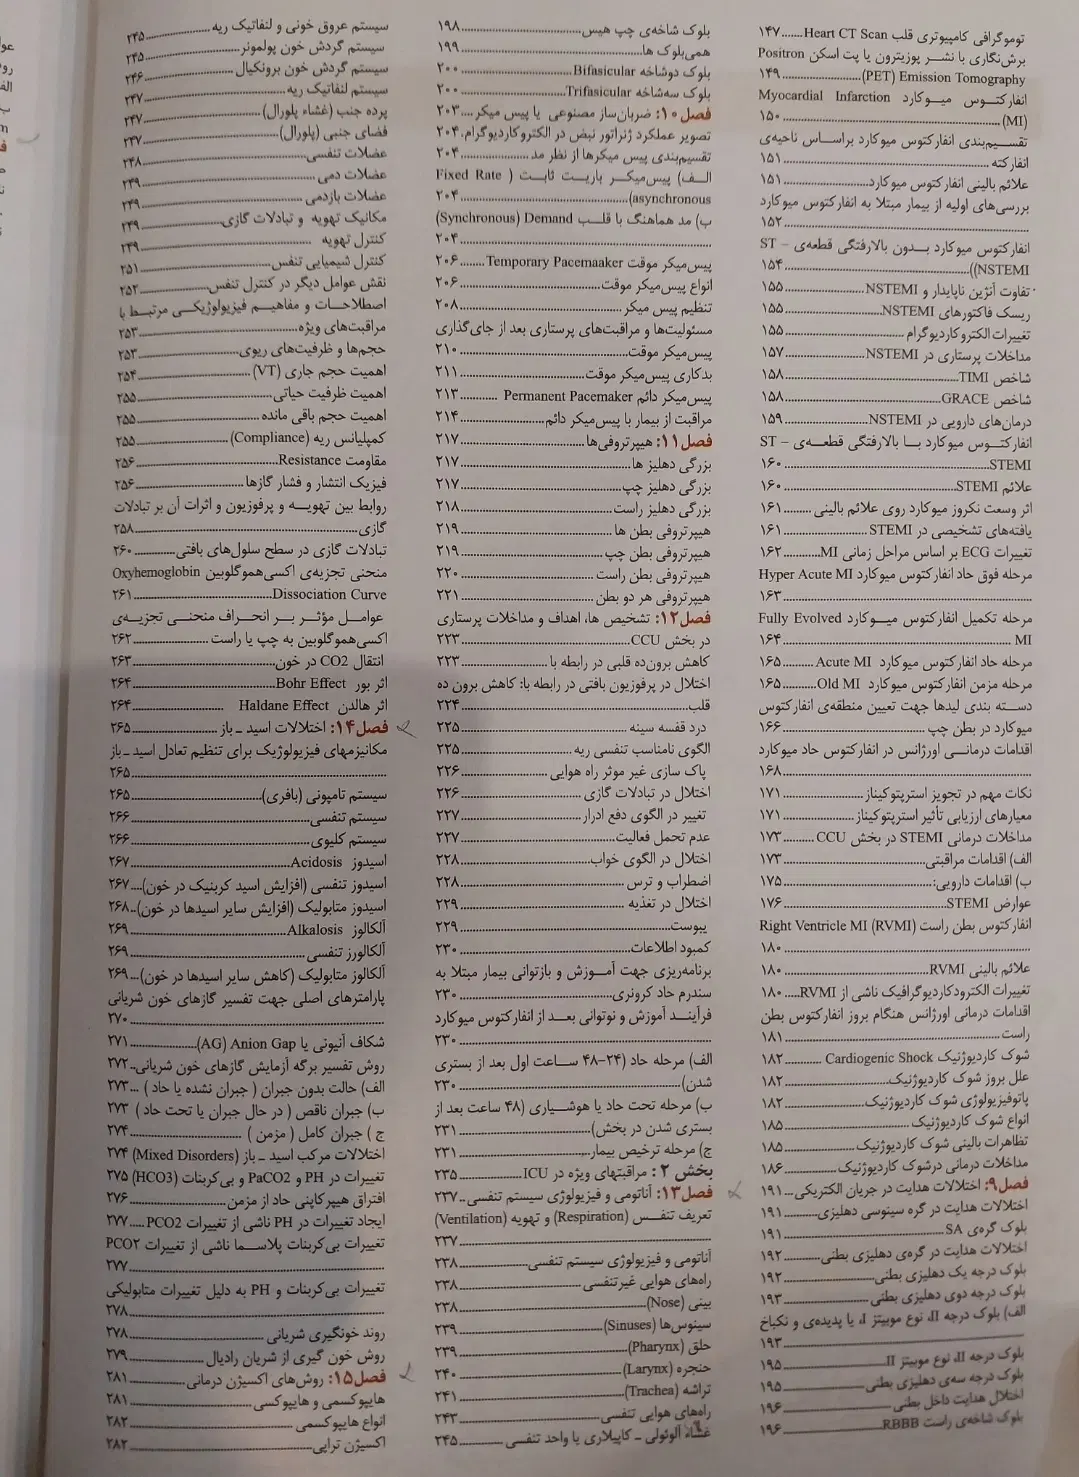 توموگرافی کامپیوتری قلب Heart CT Scan.....۱۴۷
برش‌نگاری با نشـر پوزیترون یا پت اسکن Positron
(PET) Emission Tomography.....۱۴۹
انفارکتـوس میـوکارد Myocardial Infarction
(MI).....۱۵۰
تقسـیم‌بندی انفارکتوس میوکارد براسـاس ناحیه‌ی
انفارکته.....۱۵۱
علائم بالینی انفارکتوس میوکارد.....۱۵۱
بررسی‌های اولیه از بیمار مبتلا به انفارکتوس میوکارد
.....۱۵۲
انفارکتوس میوکارد بـدون بالارفتگی قطعه‌ی – ST
NSTEMI)).....۱۵۴
تفاوت آنژین ناپایدار و NSTEMI.....۱۵۵
ریسک فاکتورهای NSTEMI.....۱۵۵
تغییرات الکتروکاردیوگرام.....۱۵۵
مداخلات پرستاری در NSTEMI.....۱۵۷
شاخص TIMI.....۱۵۸
شاخص GRACE.....۱۵۸
درمان‌های دارویی در NSTEMI.....۱۵۹
انفارکتـوس میوکارد بـا بالارفتگی قطعـه‌ی – ST
STEMI.....۱۶۰
علائم STEMI.....۱۶۰
اثر وسعت نکروز میوکارد روی علائم بالینی.....۱۶۱
یافته‌های تشخیصی در STEMI.....۱۶۱
تغییرات ECG بر اساس مراحل زمانی MI.....۱۶۲
مرحله فوق حاد انفارکتوس میوکارد Hyper Acute MI
.....۱۶۳
مرحله تکمیل انفارکتوس میـوکارد Fully Evolved
MI.....۱۶۴
مرحله حاد انفارکتوس میوکارد Acute MI.....۱۶۵
مرحله مزمن انفارکتوس میوکارد Old MI.....۱۶۵
دسـته بندی لیدها جهت تعیین منطقه‌ی انفارکتوس
میوکارد در بطن چپ.....۱۶۶
اقدامات درمانـی اورژانس در انفارکتوس حاد میوکارد
.....۱۶۸
نکات مهم در تجویز استرپتوکیناز.....۱۷۱
معیارهای ارزیابی تأثیر استرپتوکیناز.....۱۷۱
مداخلات درمانی STEMI در بخش CCU.....۱۷۳
الف) اقدامات مراقبتی.....۱۷۳
ب) اقدامات دارویی:.....۱۷۵
عوارض STEMI.....۱۷۶
انفارکتوس بطن راست Right Ventricle MI (RVMI)
.....۱۸۰
علائم بالینی RVMI.....۱۸۰
تغییرات الکترودکاردیوگرافیک ناشی از RVMI.....۱۸۰
اقدامات درمانی اورژانس هنگام بروز انفارکتوس بطن
راست.....۱۸۱
شوک کاردیوژنیک Cardiogenic Shock.....۱۸۲
علل بروز شوک کاردیوژنیک.....۱۸۲
پاتوفیزیولوژی شوک کاردیوژنیک.....۱۸۲
انواع شوک کاردیوژنیک.....۱۸۵
تظاهرات بالینی شوک کاردیوژنیک.....۱۸۵
مداخلات درمانی درشوک کاردیوژنیک.....۱۸۶
فصل۹: اختلالات هدایت در جریان الکتریکی...۱۹۱
اختلالات هدایت در گره سینوسی دهلیزی.....۱۹۱
بلوک گره‌ی SA.....۱۹۱
اختلالات هدایت در گره‌ی دهلیزی بطنی.....۱۹۲
بلوک درجه یک دهلیزی بطنی.....۱۹۲
بلوک درجه دوی دهلیزی بطنی.....۱۹۳
الف) بلوک درجه II، نوع موبیتز I، یا پدیده‌ی و نکباخ
.....۱۹۳
بلوک درجه II، نوع موبیتز II.....۱۹۵
بلوک درجه سه‌ی دهلیزی بطنی.....۱۹۵
اختلال هدایت داخل بطنی.....۱۹۶
بلوک شاخه‌ی راست RBBB.....۱۹۶
بلوک شاخه‌ی چپ هیس.....۱۹۸
همی‌بلوک ها.....۱۹۹
بلوک دوشاخه Bifasicular.....۲۰۰
بلوک سه‌شاخه Trifasicular.....۲۰۰
فصل۱۰: ضربان‌ساز مصنوعی یا پیس میکر....۲۰۳
تصویر عملکرد ژنراتور نبض در الکتروکاردیوگرام.۲۰۴
تقسیم‌بندی پیس میکرها از نظر مد.....۲۰۴
الـف) پیس‌میکـر باریـت ثابـت ( Fixed Rate
asynchronous).....۲۰۴
ب) مد هماهنگ با قلـب Synchronous) Demand)
.....۲۰۴
پیس‌میکر موقت Temporary Pacemaaker.....۲۰۶
انواع پیس‌میکر موقت.....۲۰۶
تنظیم پیس میکر.....۲۰۸
مسئولیت‌ها و مراقبت‌های پرستاری بعد از جای‌گذاری
پیس‌میکر موقت.....۲۱۰
بدکاری پیس‌میکر موقت.....۲۱۱
پیس‌میکر دائم Permanent Pacemaker.....۲۱۳
مراقبت از بیمار با پیس‌میکر دائم.....۲۱۴
فصل۱۱: هیپرتروفی‌ها.....۲۱۷
بزرگی دهلیز ها.....۲۱۷
بزرگی دهلیز چپ.....۲۱۷
بزرگی دهلیز راست.....۲۱۸
هیپرتروفی بطن ها.....۲۱۹
هیپرتروفی بطن چپ.....۲۱۹
هیپرتروفی بطن راست.....۲۲۰
هیپرتروفی هر دو بطن.....۲۲۱
فصل۱۲: تشخیص ها، اهداف و مداخلات پرستاری
در بخش CCU.....۲۲۳
کاهش برون‌ده قلبی در رابطه با.....۲۲۳
اختلال در پرفوزیون بافتی در رابطه با: کاهش برون ده
قلب.....۲۲۴
درد قفسه سینه.....۲۲۵
الگوی نامناسب تنفسی ریه.....۲۲۵
پاک سازی غیر موثر راه هوایی.....۲۲۶
اختلال در تبادلات گازی.....۲۲۶
تغییر در الگوی دفع ادرار.....۲۲۷
عدم تحمل فعالیت.....۲۲۷
اختلال در الگوی خواب.....۲۲۸
اضطراب و ترس.....۲۲۸
اختلال در تغذیه.....۲۲۹
یبوست.....۲۲۹
کمبود اطلاعات.....۲۳۰
برنامه‌ریزی جهت آمـوزش و بازتوانی بیمار مبتلا به
سندرم حاد کرونری.....۲۳۰
فرآینـد آموزش و نوتوانی بعـد از انفارکتوس میوکارد
.....۲۳۰
الف) مرحله حاد (۲۴-۴۸ سـاعت اول بعد از بستری
شدن).....۲۳۰
ب) مرحله تحت حاد یا هوشـیاری (۴۸ ساعت بعد از
بستری شدن در بخش).....۲۳۱
ج) مرحله ترخیص بیمار.....۲۳۱
بخش ۲: مراقبتهای ویژه در ICU.....۲۳۵
فصل۱۳: آناتومی و فیزیولوژی سیستم تنفسی..۲۳۷
تعریف تنفـس (Respiration) و تهویه (Ventilation)
.....۲۳۷
آناتومی و فیزیولوژی سیستم تنفسی.....۲۳۸
راه‌های هوایی غیرتنفسی.....۲۳۸
بینی (Nose).....۲۳۸
سینوس‌ها (Sinuses).....۲۳۹
حلق (Pharynx).....۲۳۹
حنجره (Larynx).....۲۴۰
تراشه (Trachea).....۲۴۱
راه‌های هوایی تنفسی.....۲۴۳
غشاء آلوئولی ـ کاپیلاری یا واحد تنفسی.....۲۴۵
سیستم عروق خونی و لنفاتیک ریه.....۲۴۵
سیستم گردش خون پولمونر.....۲۴۵
سیستم گردش خون برونکیال.....۲۴۶
سیستم لنفاتیک ریه.....۲۴۷
پرده جنب (غشاء پلورال).....۲۴۷
فضای جنبی (پلورال).....۲۴۷
عضلات تنفسی.....۲۴۸
عضلات دمی.....۲۴۹
عضلات بازدمی.....۲۴۹
مکانیک تهویه و تبادلات گازی.....۲۴۹
کنترل تهویه.....۲۴۹
کنترل شیمیایی تنفس.....۲۵۱
نقش عوامل دیگر در کنترل تنفس.....۲۵۲
اصطلاحـات و مفاهیـم فیزیولوژیکـی مرتبـط با
مراقبت‌های ویژه.....۲۵۳
حجم‌ها و ظرفیت‌های ریوی.....۲۵۳
اهمیت حجم جاری (VT).....۲۵۴
اهمیت ظرفیت حیاتی.....۲۵۵
اهمیت حجم باقی مانده.....۲۵۵
کمپلیانس ریه (Compliance).....۲۵۵
مقاومت Resistance.....۲۵۶
فیزیک انتشار و فشار گازها.....۲۵۶
روابط بین تهویـه و پرفوزیون و اثرات آن بر تبادلات
گازی.....۲۵۸
تبادلات گازی در سطح سلول‌های بافتی.....۲۶۰
منحنی تجزیه‌ی اکسی‌هموگلوبین Oxyhemoglobin
Dissociation Curve.....۲۶۱
عوامـل مؤثـر بـر انحـراف منحنـی تجزیـه‌ی
اکسی‌هموگلوبین به چپ یا راست.....۲۶۲
انتقال CO2 در خون.....۲۶۳
اثر بور Bohr Effect.....۲۶۴
اثر هالدن Haldane Effect.....۲۶۴
فصل۱۴: اختلالات اسید ـ باز.....۲۶۵
مکانیزمهای فیزیولوژیک برای تنظیم تعادل اسید ـ باز
.....۲۶۵
سیستم تامپونی (بافری).....۲۶۵
سیستم تنفسی.....۲۶۶
سیستم کلیوی.....۲۶۶
اسیدوز Acidosis.....۲۶۷
اسیدوز تنفسی (افزایش اسید کربنیک در خون)....۲۶۷
اسیدوز متابولیک (افزایش سایر اسیدها در خون)..۲۶۸
آلکالوز Alkalosis.....۲۶۹
آلکالورز تنفسی.....۲۶۹
آلکالوز متابولیک (کاهش سایر اسیدها در خون)...۲۶۹
پارامترهای اصلی جهت تفسیر گازهای خون شریانی
.....۲۷۰
شکاف آنیونی یا AG) Anion Gap).....۲۷۱
روش تفسیر برگه آزمایش گازهای خون شریانی..۲۷۲
الف) حالت بدون جبران ( جبران نشده یا حاد )...۲۷۳
ب) جبران ناقص ( در حال جبران یا تحت حاد ) ۲۷۳
ج ) جبران کامل ( مزمن ).....۲۷۴
اختلالات مرکب اسید ـ باز (Mixed Disorders) ۲۷۴
تغییرات در PH و PaCO2 و بی‌کربنات (HCO3) ۲۷۵
افتراق هیپرکاپنی حاد از مزمن.....۲۷۶
ایجاد تغییرات در PH ناشی از تغییرات PCO2.....۲۷۷
تغییرات بی‌کربنات پلاسـما ناشی از تغییرات PCO۲
.....۲۷۷
تغییرات بی‌کربنات و PH به دلیل تغییرات متابولیکی
.....۲۷۸
روند خونگیری شریانی.....۲۷۸
روش خون گیری از شریان رادیال.....۲۷۹
فصل۱۵: روش‌های اکسیژن درمانی.....۲۸۱
هایپوکسمی و هایپوکسی.....۲۸۱
انواع هایپوکسمی.....۲۸۲
اکسیژن تراپی.....۲۸۲